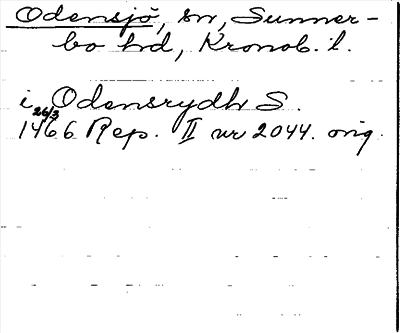 Odensjö, sn, Sunner-
bo hd, Kronob. l.
i Odensrydh S.
26/3
1466 Rep. II nr 2044. orig.